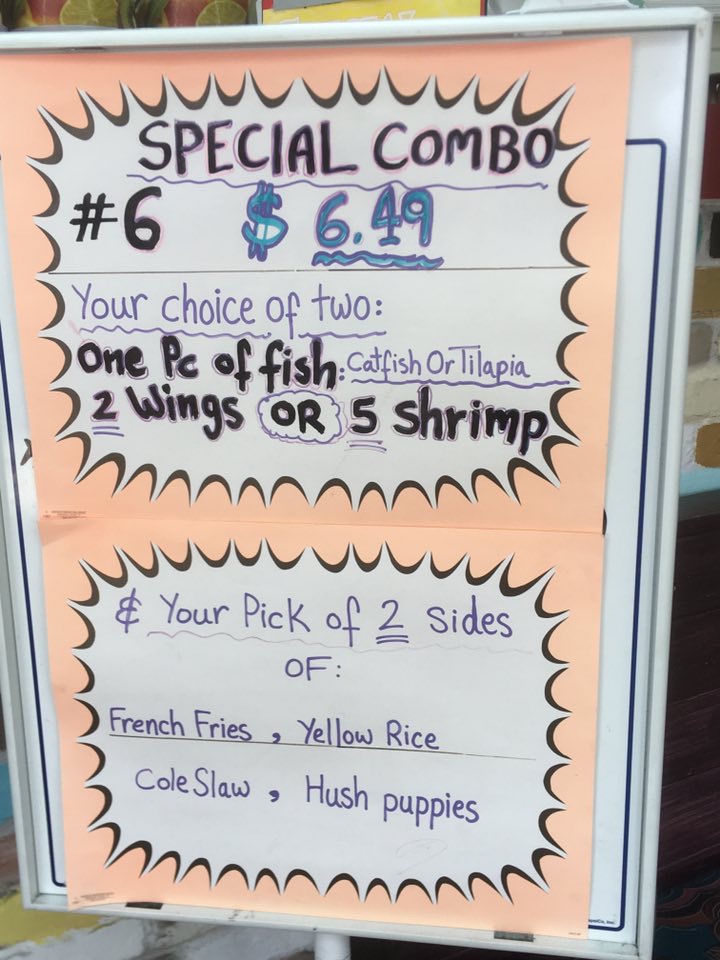 SPECIAL COMBO
#6 $ 6.49
Your choice of two:
One Pc of fish: Catfish Or Tilapia
2 Wings OR 5 Shrimp
& Your Pick of 2 Sides
OF:
French Fries , Yellow Rice
Cole Slaw , Hush puppies